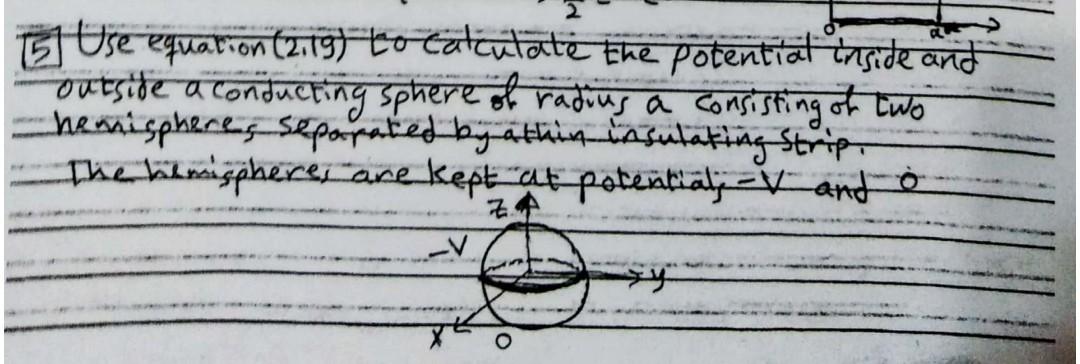 2
0 a
[5] Use equation (2.19) to calculate the potential inside and
outside a conducting sphere of radius a consisting of two
hemispheres separated by a thin insulating strip.
The hemispheres are kept at potentials -V and 0
Z
-V
y
X
0